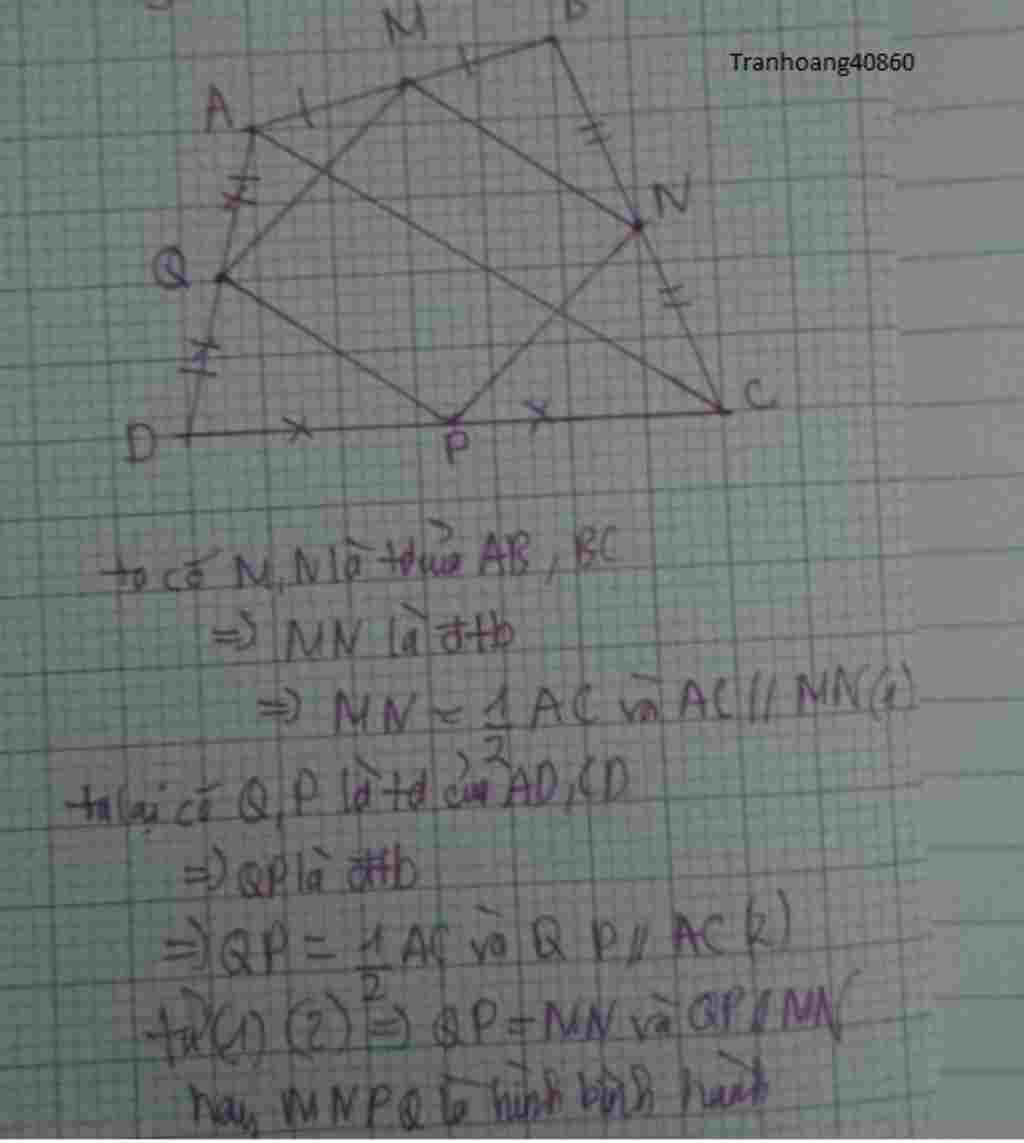 M
B
Tranhoang40860
A
N
Q
C
D
P
ta có M, N là tđ của AB, BC
=) MN là đtb
=) MN = 1/2 AC và AC // MN (1)
ta lại có Q, P là tđ của AD, CD
=) QP là đtb
=) QP = 1/2 AC và Q P // AC (2)
từ (1) (2) =) QP = MN và QP // MN
hay MNPQ là hình bình hành